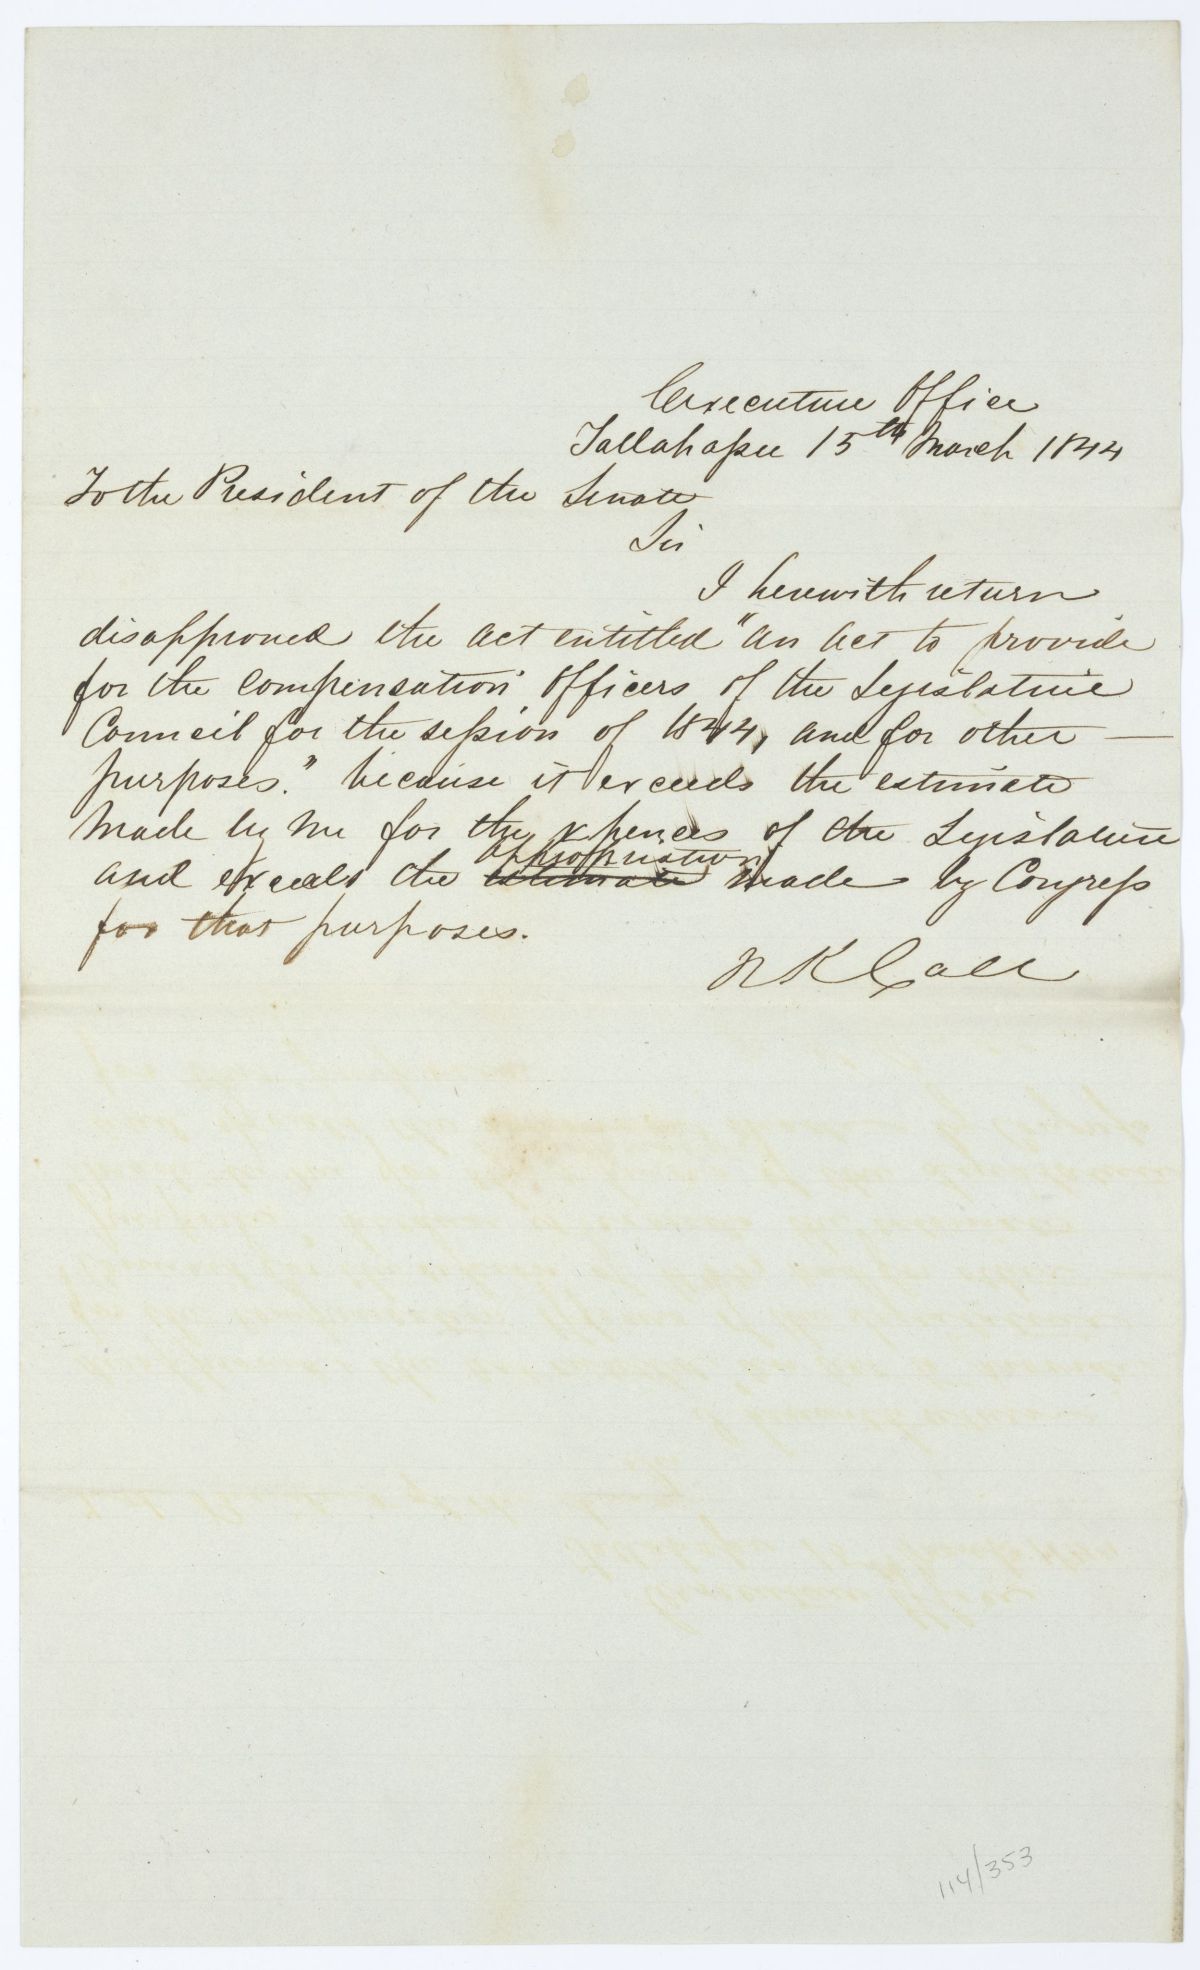 Executive Office
Tallahassee 15th March 1844
To the President of the Senate
Sir
I herewith return
disapproved the act entitled "An act to provide
for the compensation officers of the Legislative
Council for the session of 1844, and for other —
purposes." because it exceeds the estimate
made by me for the expences of the Legislature
and exceeds the ~~estimate~~ appropriation made by Congress
for that purposes.
R K Call
114/353